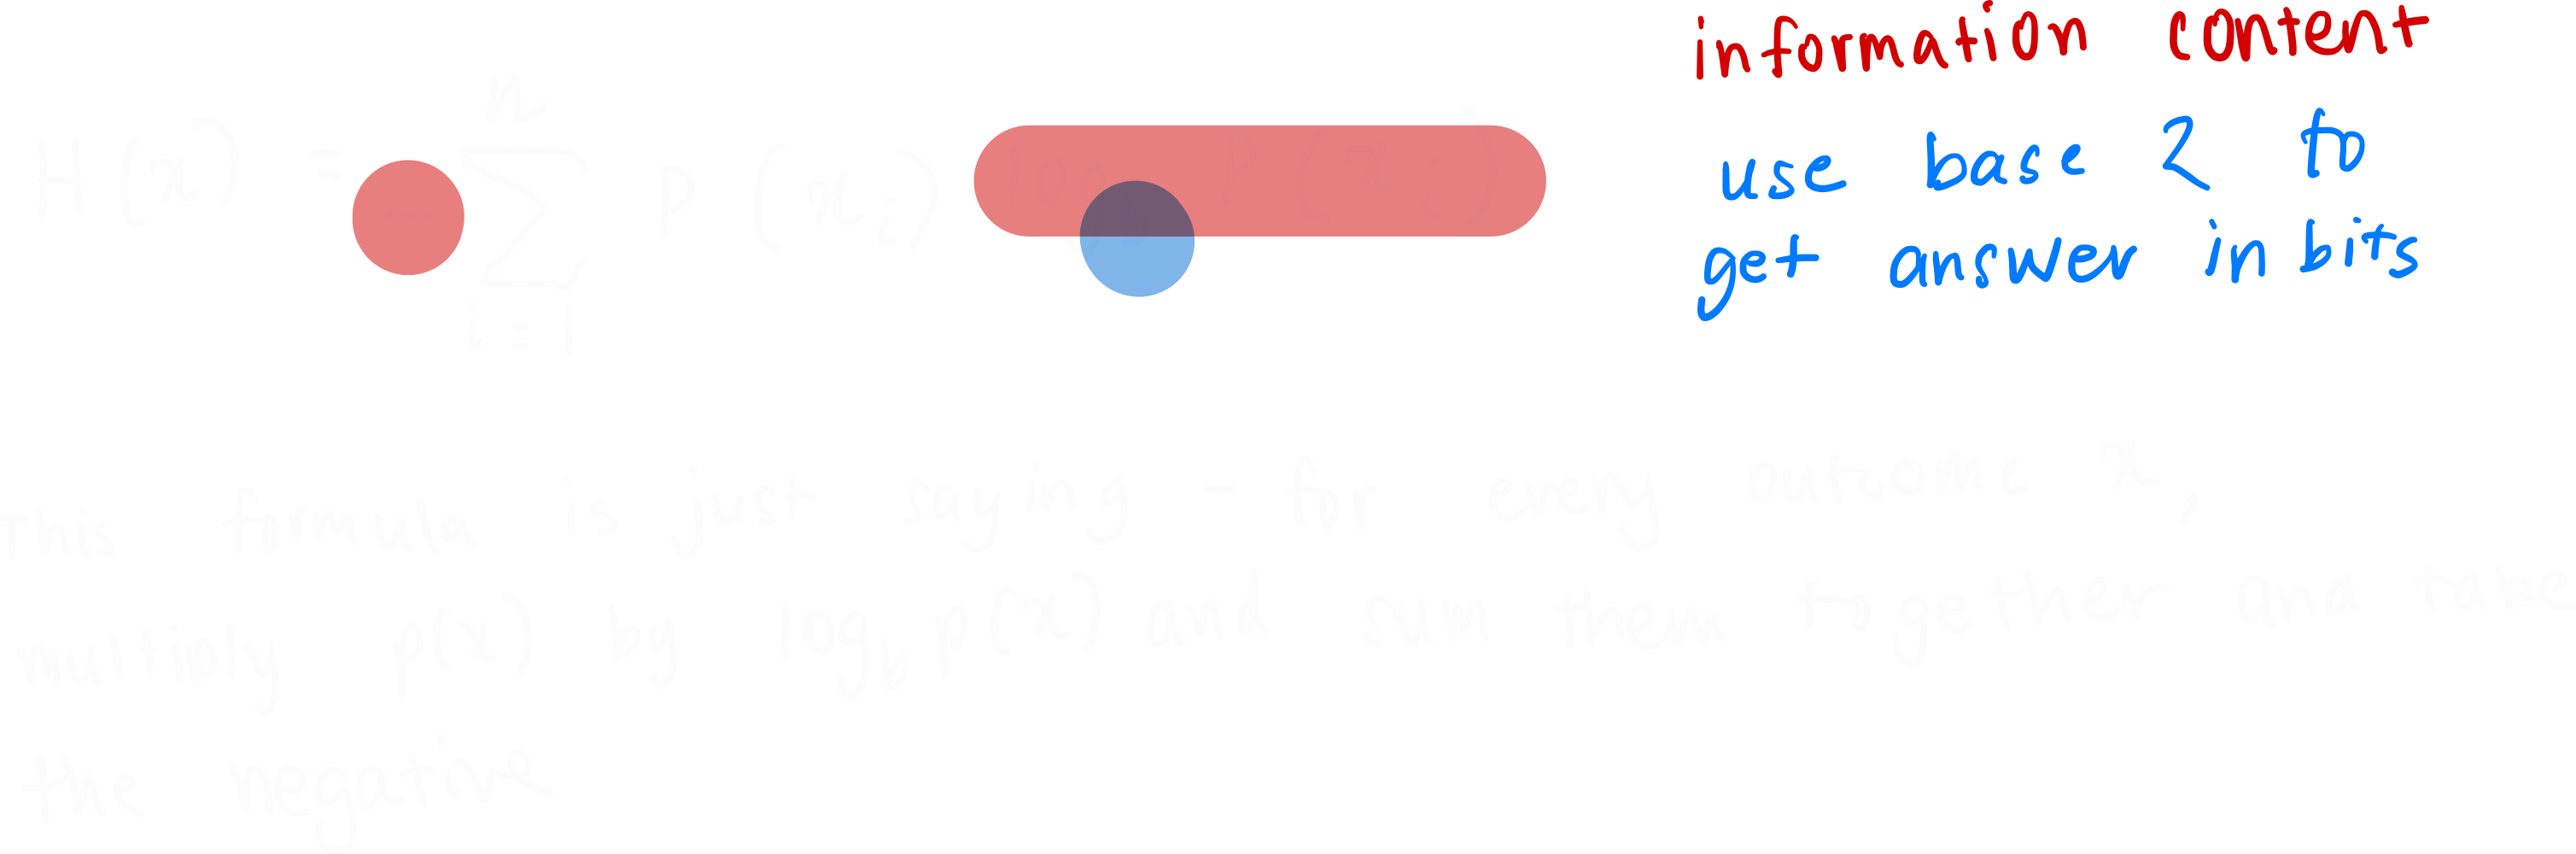 information content
use base 2 to
get answer in bits
n
H(x) = - Σ P(x_i) log_b P(x_i)
i = 1
This formula is just saying - for every outcome x,
multiply p(x) by log_b p(x) and sum them together and take
the negative